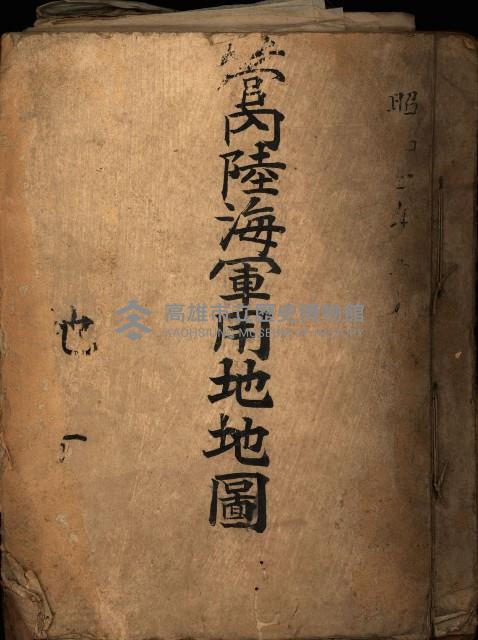 昭
管内陸海軍用地地圖
高雄市立歷史博物館
KAOHSIUNG MUSEUM OF HISTORY